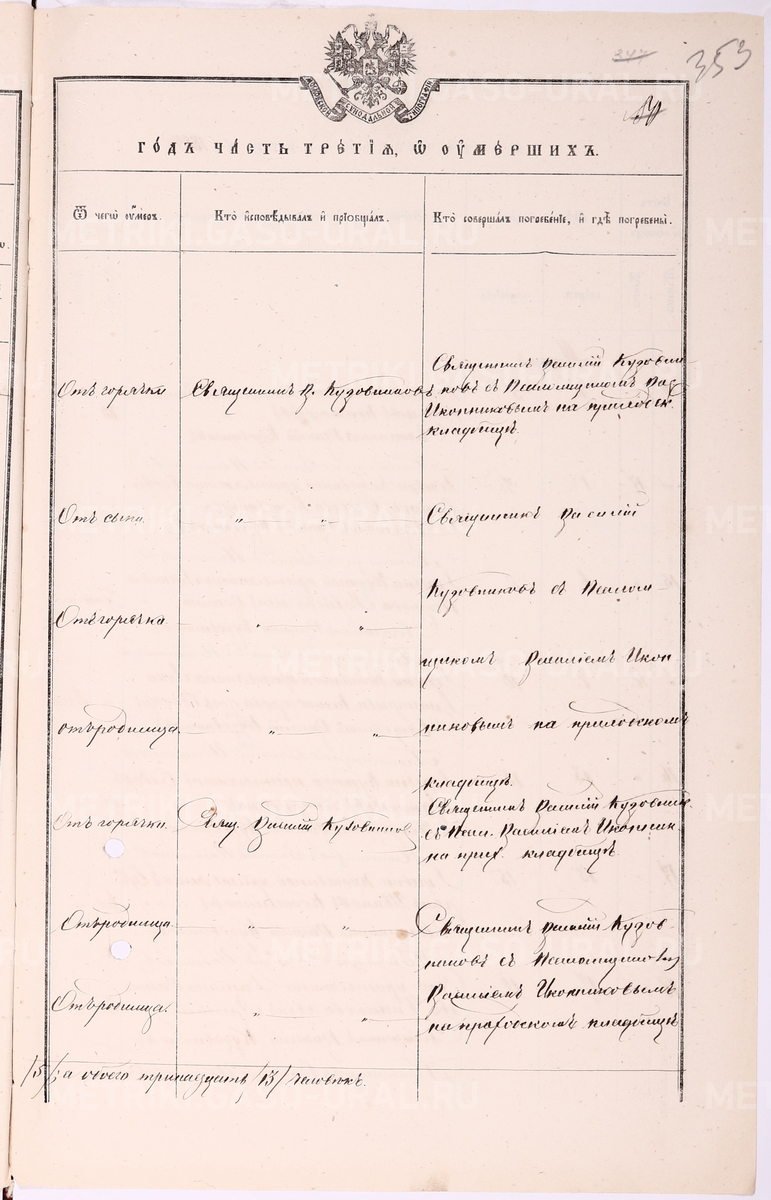 353
Годъ часть третїѧ, ѿ оумершихъ.
Ѿ чегѡ оумеръ.
Кто исповѣдывалъ и прїобщалъ.
Кто совершалъ погребенїе, и гдѣ погребены.
Отъ горячки
Священникъ В. Кузовниковъ
Священникъ Василій Кузовни-
ковъ съ Псаломщикомъ Вас.
Иконниковымъ на приходск.
кладбищѣ.
Отъ сыпи
" "
Священникъ Василій
Кузовниковъ съ Псалом-
Отъ горячки
" "
щикомъ Василіемъ Икон
отъ родимца
" "
никовымъ на приходскомъ
кладбищѣ.
Отъ горячки
Свящ. Василій Кузовников
Священникъ Василій Кузовник.
съ Псал. Василіемъ Иконник.
на прих. кладбищѣ.
Отъ родимца
" "
Священникъ Василій Кузов-
никовъ съ Псаломщикомъ
Отъ родимца.
" "
Василіемъ Иконниковымъ
на приходскомъ кладбищѣ
/5/, а обоего тринадцать /13/ человѣкъ.
METRIKI.GASO-URAL.RU